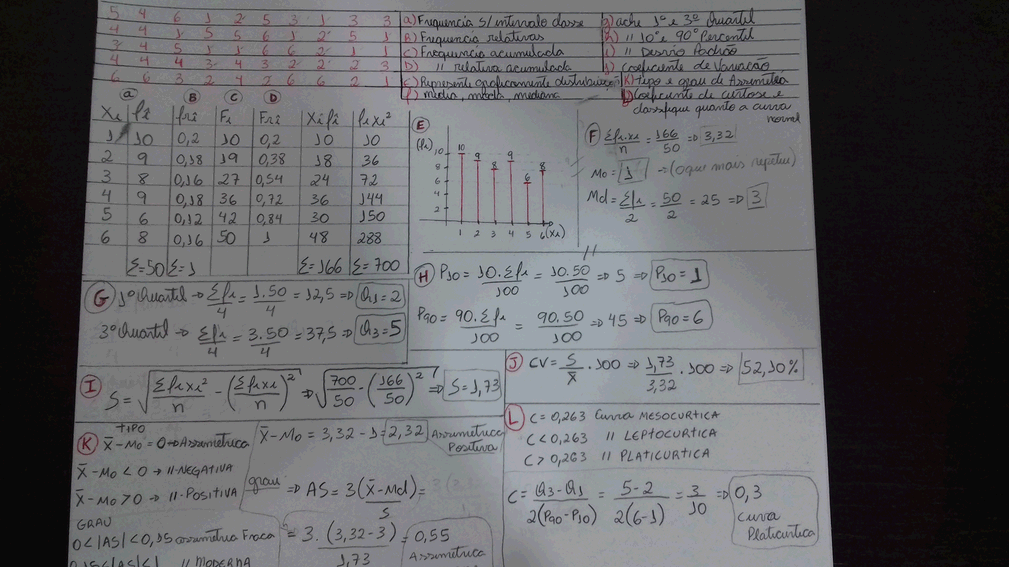 5 4 6 1 2 5 3 1 3 3
4 4 1 5 5 6 1 2 5 1
4 4 4 3 4 3 2 2 2 3
6 6 3 2 4 6 6 2 1
a) Frequencia s/ intervalo classe
B) Frequencia relativas
C) Frequencia acumulada
D) " relativa acumulada
E) Represente graficamente distribuição
f) média, moda, mediana
g) ache 1º e 3º Quartil
h) " 10º e 90º Percentil
i) " Desvio Padrão
j) Coeficiente de Variação
K) tipo e grau de Assimetria
L) Coeficiente de curtose e
classifique quanto a curva
normal
a B C D
Xi fi fri Fi Fri Xifi fixi²
1 10 0,2 10 0,2 10 10
2 9 0,18 19 0,38 18 36
3 8 0,16 27 0,54 24 72
4 9 0,18 36 0,72 36 144
5 6 0,12 42 0,84 30 150
6 8 0,16 50 1 48 288
Σ=50 Σ=1 Σ=166 Σ=700
E
(fi)
10 9 8 9 6 8
10
8
6
4
2
1 2 3 4 5 6 (Xi)
F Σfi.xi/n = 166/50 => 3,32
Mo = 1 -> (o que mais repetiu)
Md = Σfi/2 = 50/2 = 25 => 3
G 1º Quartil -> Σfi/4 = 1.50/4 = 12,5 => Q1 = 2
3º Quartil -> Σfi/4 = 3.50/4 = 37,5 => Q3 = 5
H P10 = 10.Σfi/100 = 10.50/100 => 5 => P10 = 1
P90 = 90.Σfi/100 = 90.50/100 => 45 => P90 = 6
I S = √Σfixi²/n - (Σfixi/n)² => √700/50 - (166/50)² => S = 1,73
J CV = S/X̄ . 100 => 1,73/3,32 . 100 => 52,10%
K TIPO
X̄ - Mo = 0 -> Assimetrica
X̄ - Mo < 0 -> " NEGATIVA
X̄ - Mo > 0 -> " POSITIVA
X̄ - Mo = 3,32 - 1 = 2,32 Assimetrica
Positiva
grau => AS = 3(X̄ - Md)/S =
= 3.(3,32 - 3)/1,73 = 0,55
Assimetrica
GRAU
0 < |AS| < 0,15 assimetria Fraca
0,15 < |AS| < 1 " MODERNA
L C = 0,263 Curva MESOCURTICA
C < 0,263 " LEPTOCURTICA
C > 0,263 " PLATICURTICA
C = Q3 - Q1/2(P90 - P10) = 5 - 2/2(6 - 1) = 3/10 => 0,3
Curva
Platicurtica